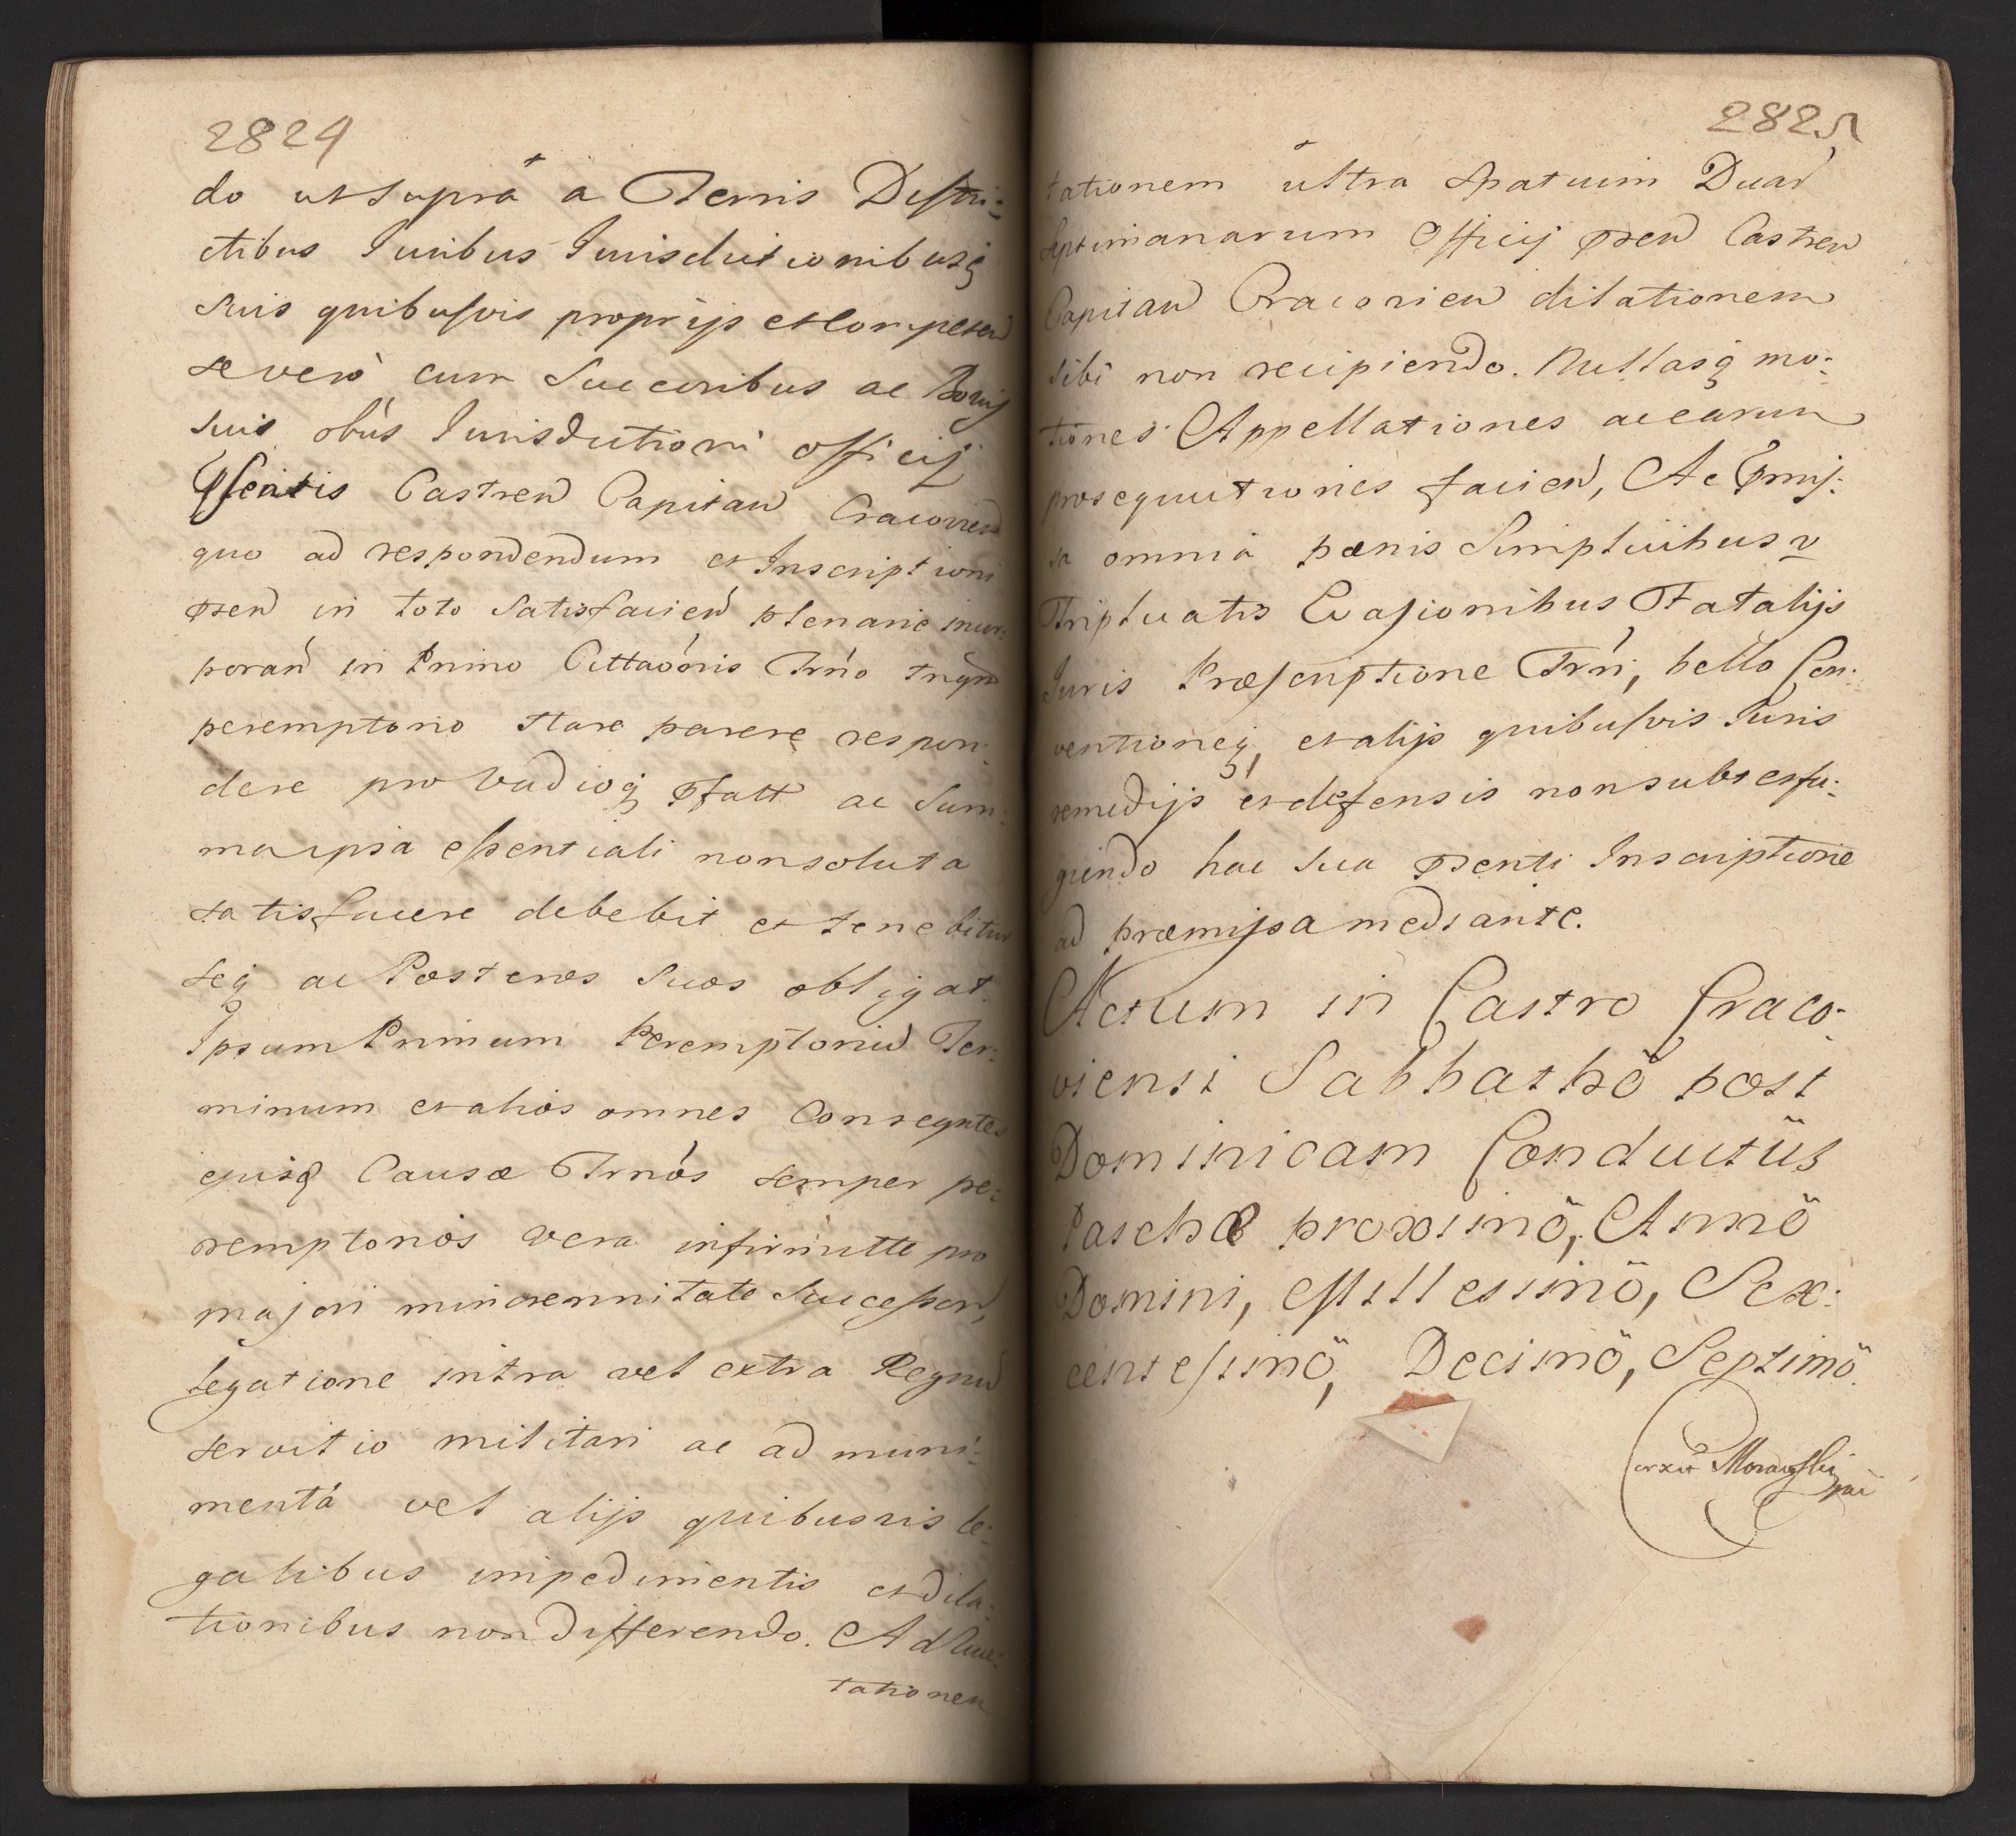 2824
do ut supra a Terris Distri:
ctibus Iuribus Iurisdictionibusq
suis quibusvis proprijs et competen
se vero cum Succoribus ac Bonis
suis obus Iurisdictioni officij
psentis Castren Capitan Cracovien
quo ad respondendum et Inscriptioni
psen in toto Satisfacien plenarie incor:
poran in Primo Cittaoonis Trno tnqm
peremptorio stare parere respon:
dere pro vadioq pfatt ac Sum:
ma ipsa essentiali non soluta
satisfacere debebit et tenebitur
seq ac Posteros suos obligat.
Ipsum Primum Peremptoriu Ter:
minum et alios omnes Conseqntes
ejusq Causæ Trnos semper pe:
remptorios vera infirmitte pro
majori minorennitate Successor,
legatione intra vel extra Regnu
servitio militari ac ad muni:
menta vel alijs quibusvis le:
galibus impedimentis et dila:
tionibus non differendo. Ad Luc:
tationem
2825
tationem ultra Spatium Duar
Septimanarum Officij psen Castren
Capitan Cracovien dilationem
sibi non recipiendo. Nullasq mo:
tiones Appellationes ac earum
prosequutiones facien, Ac pmis:
sa omnia pænis Scriptuibus v
Triplicatis Evasionibus Fatalijs
Iuris Præscriptione Trni, bello Con:
ventioneq, et alijs quibusvis Iuris
remedijs et defensis non subterfu:
giendo hac sua psenti Inscriptione
ad præmissa mediante.
Actum in Castro Craco-
viensi Sabbathö post
Dominicam Conductüs
Paschæ proximö, Annö
Domini, Millesimö, Sex:
centesimö, Decimö, Septimö.
corxit Morawski